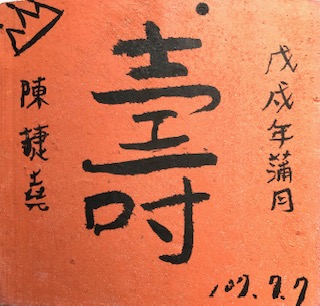 戊戌年蒲月
壽
陳蕤堯
107.7.7